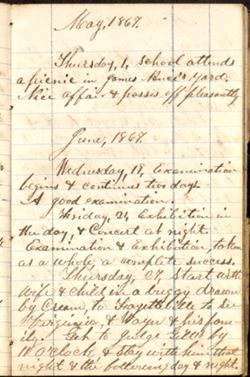 May, 1867.
Thursday, 1, School attends
a picnic in James yard.
Nice affair & passes off pleasantly
June, 1867.
Wednesday, 19, Examination
begins & continues two days.
A good examination.
Friday, 21, Exhibition in
the day, & Concert at night.
Examination & Exhibition, taken
as a whole, a complete success.
Thursday, 27, Start with
wife & child in a buggy drawn
by to Fayetteville to see
Virginia, & & his fam-
ily. Get to Judge by
11 O'Clock, & stay with him that
night & the following day & night.